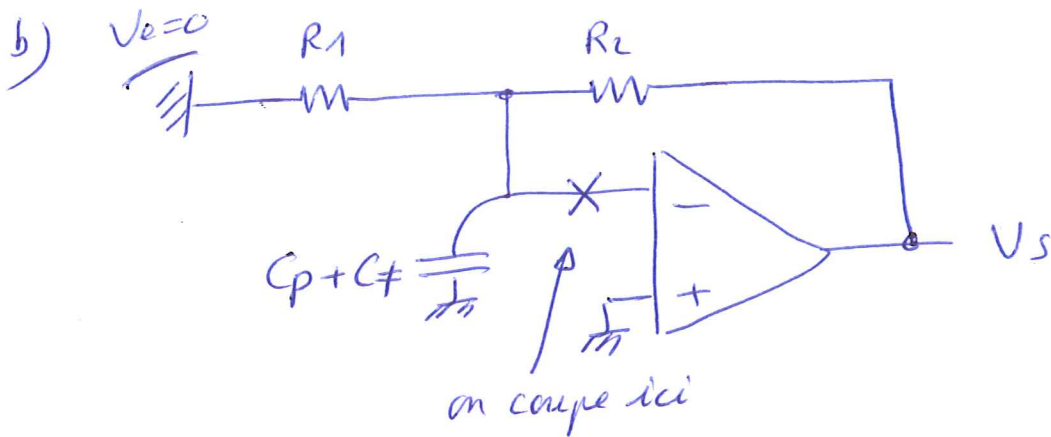 b) Ve=0
R1
R2
−
Cp+C≠
+
Vs
on coupe ici